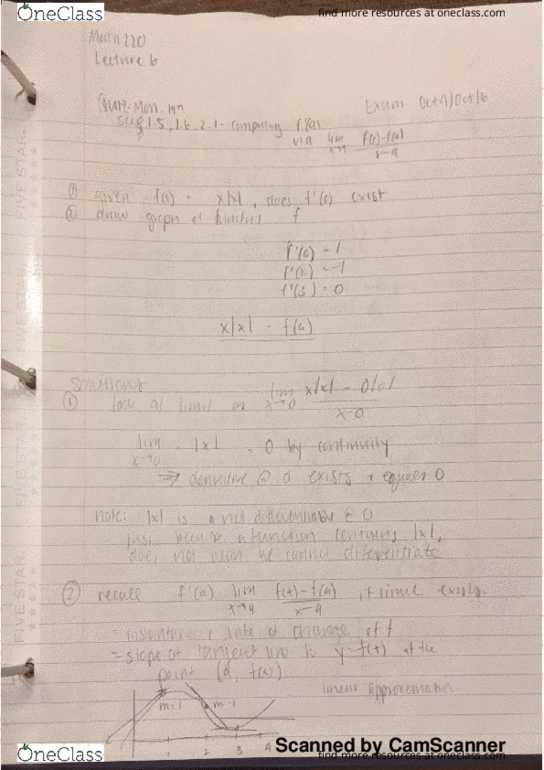 OneClass
find more resources at oneclass.com
Math 220
Lecture 6
Quiz: Mon.
Exam Oct 4/Oct 16
1.5, 1.6, 2.1 - computing f'(a)
via lim x→a f(x)-f(a)
x-a
① given f(x) = x|x|, does f'(0) exist
② draw graph of function f
f'(0) = 1
f'(2) = -1
f'(3) = 0
x|x| = f(a)
Solutions
① look at limit as lim x→0 x|x| - 0|0|
x-0
lim x→0 |x| = 0 by continuity
⇒ derivative @ 0 exists + equals 0
note: |x| is not differentiable @ 0
just because a function contains |x|,
does not mean be cannot differentiate
② recall f'(a) lim x→a f(x)-f(a) if limit exists.
x-a
= instantaneous rate of change of f
= slope of tangent line to y=f(x) at the
point (a, f(a))
linear approximation
m=1
m=-1
1 2 3 4
Scanned by CamScanner
OneClass
find more resources at oneclass.com
FIVE STAR.
FIVE STAR.
FIVE STAR.